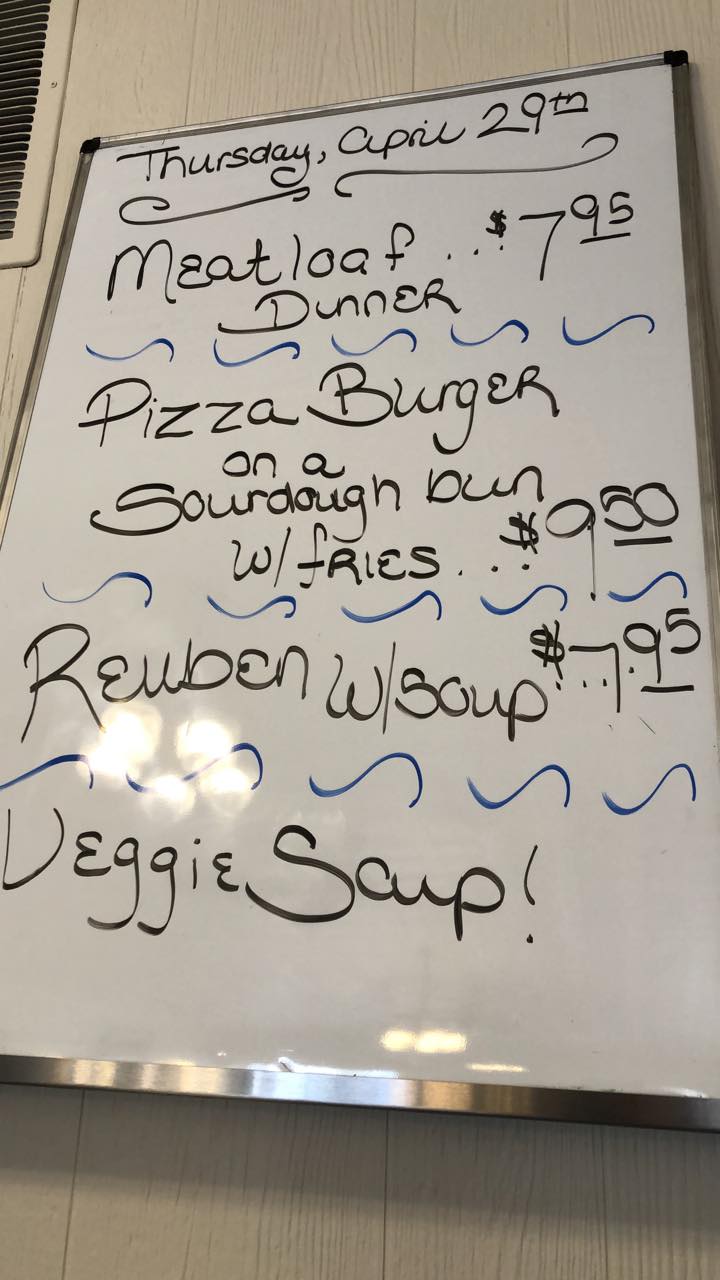 Thursday, April 29th
Meatloaf ... $7.95
Dinner
Pizza Burger
on a
Sourdough bun
w/fries ... $9.50
Reuben w/soup ... $7.95
Veggie Soup!